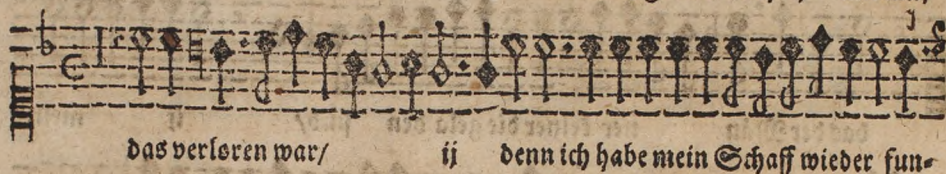 das verloren war/ ij denn ich habe mein Schaff wieder fun⸗